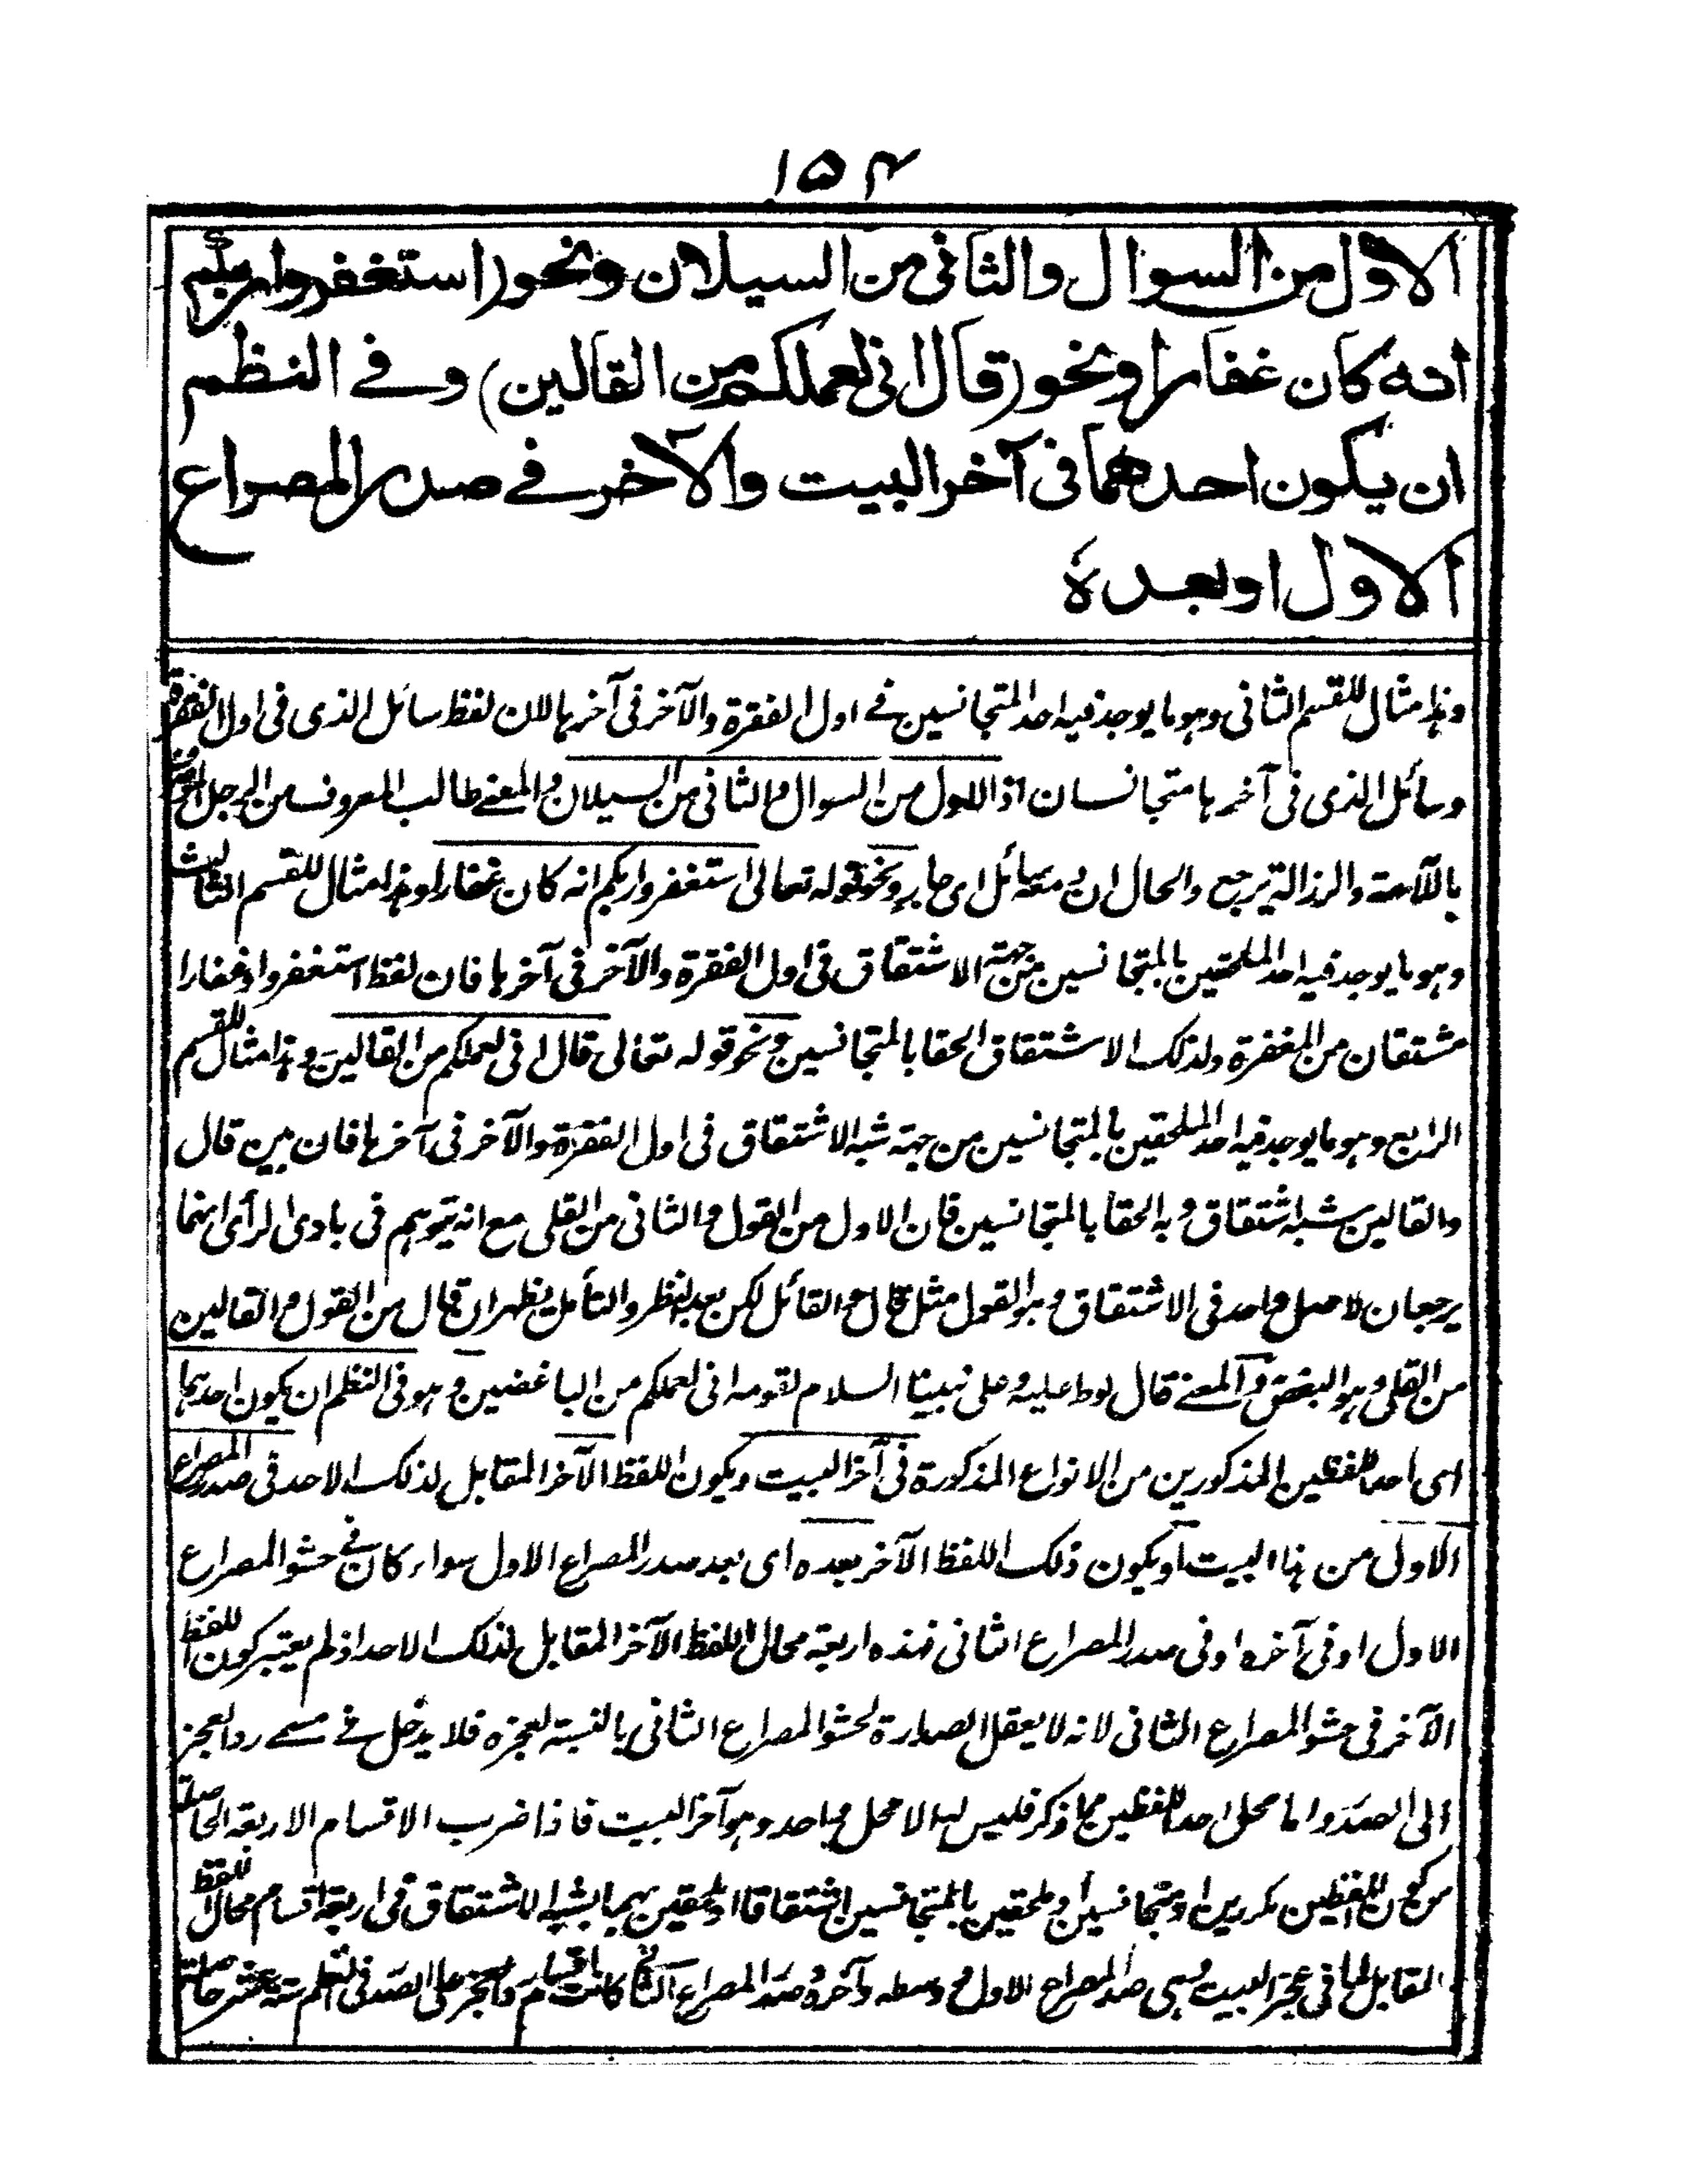 ١٥٤
الاول من السوال والثانى من السيلان ونحو (استغفروا ربكم
انه كان غفارا) ونحو (قال انى لعملكم من القالين) وفے النظم
ان يكون احدهما فى آخر البيت والآخر فے صدر المصراع
الاول او بعده
وہذا مثال للقسم الثانى وہو ما يوجد فيه احد المتجانسين فے اول الفقرة والآخر فى آخرہا لان لفظ سائل الذى فى اول الفقرة
وسائل الذى فى آخرہا متجانسان اذ الاول من السوال والثانى من السيلان والمعنے طالب المعروف من الرجل
والرزالة يرجع والحال ان دمعه سائل اى جار ونحو قوله تعالى استغفروا ربكم انه كان غفارا وہذا مثال للقسم الثالث
وہو ما يوجد فيه احد الملحقين بالمتجانسين من جهة الاشتقاق فى اول الفقرة والآخر فى آخرہا فان لفظ استغفروا وغفارا
مشتقان من المغفرة ولذلك الاشتقاق الحقا بالمتجانسين ونحو قوله تعالى قال انى لعملكم من القالين وہذا مثال للقسم
الرابع وہو ما يوجد فيه احد الملحقين بالمتجانسين من جهة شبه الاشتقاق فى اول الفقرة والآخر فى آخرہا فان بين قال
والقالين شبه اشتقاق وبه الحقا بالمتجانسين فان الاول من القول والثانى من القلى مع انه يتوہم فى بادى الرأى انہما
يرجعان لاصل واحد فى الاشتقاق وہو القول مثل قال والقائل لكن بعد النظر والتأمل يظهر ان قال من القول والقالين
من القلى وہو البغض والمعنے قال لوط عليه وعلى نبينا السلام لقومه انى لعملكم من الباغضين وہو فى النظم ان يكون احدہما
اى احد اللفظين المذكورين من الانواع المذكورة فى آخر البيت ويكون اللفظ الآخر المقابل لذلك الاحد فى صدر المصراع
الاول من ہذا البيت او يكون ذلك اللفظ الآخر بعده اى بعد صدر المصراع الاول سواء كان فے حشو المصراع
الاول او فى آخره او فى صدر المصراع الثانى فہذه اربعة محال للفظ الآخر المقابل لذلك الاحد اذ لم يعتبر كون اللفظ
الآخر فى حشو المصراع الثانى لانه لا يعقل الصدارة لحشو المصراع الثانى بالنسبة لعجزه فلا يدخل فے مسمے رد العجز
الى الصدر واما محل احد اللفظين مما ذكر فليس لہا الا محل واحد وہو آخر البيت فاذا ضرب الاقسام الاربعة الحاصلة
من كون اللفظين مكررين او متجانسين او ملحقين بالمتجانسين اشتقاقا او ملحقين بہما بشبه الاشتقاق فى اربعة اقسام محال اللفظ
المقابل لما فى عجز البيت وہى صدر المصراع الاول ووسطه وآخره وصدر المصراع الثانى كانت اقسام رد العجز على الصدر فى النظم ستة عشر حاصلة